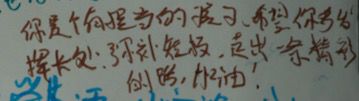 你是个有理想的孩子、希望你多发
挥长处.弥补短板.走出一条精彩
的路,加油!